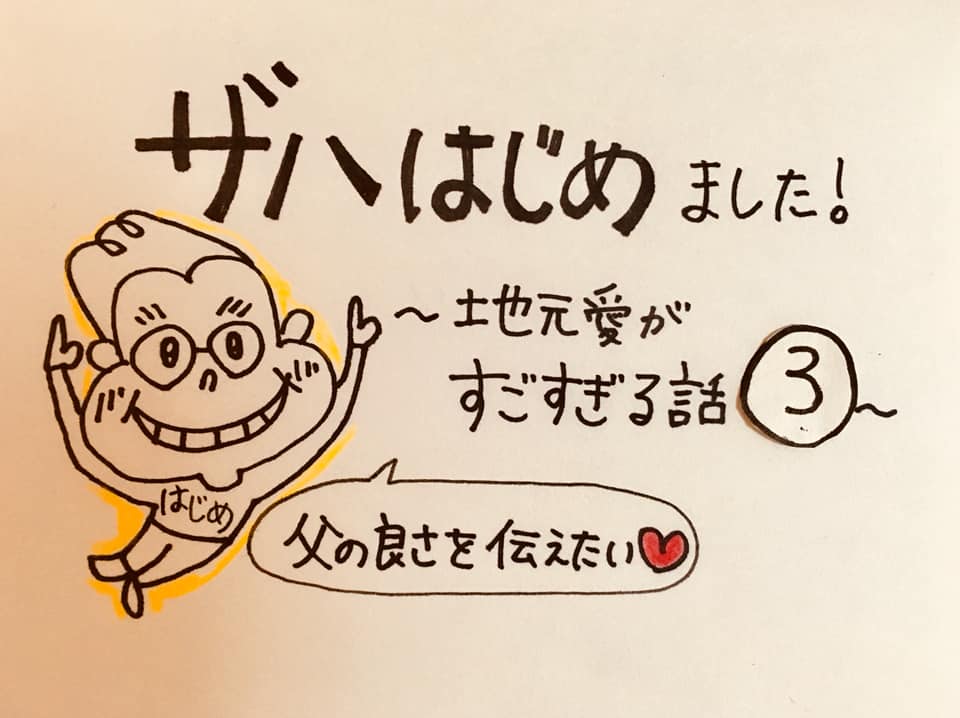 ザハはじめました!
〜地元愛が
すごすぎる話③〜
はじめ
父の良さを伝えたい♥